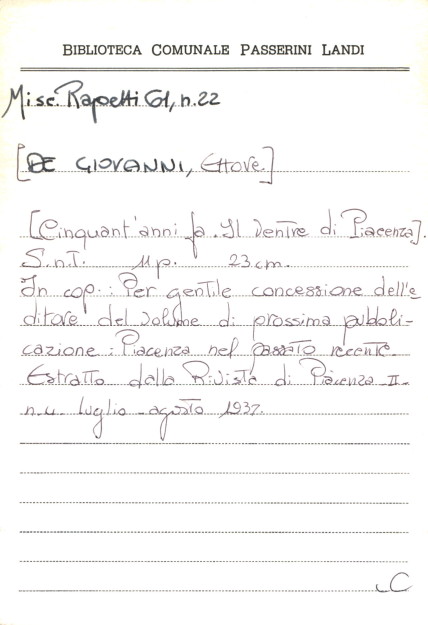 BIBLIOTECA COMUNALE PASSERINI LANDI
Misc. Rapetti 61, n. 22
[DE GIOVANNI, Ettore.]
[Cinquant'anni fa. Il Ventre di Piacenza].
S.n.T. 11 p. 23 cm.
In cop.: Per gentile concessione dell'e
ditore del volume di prossima pubbli-
cazione: Piacenza nel passato recente.
Estratto dalla Rivista di Piacenza II-
n. 4 luglio - agosto 1937.
C